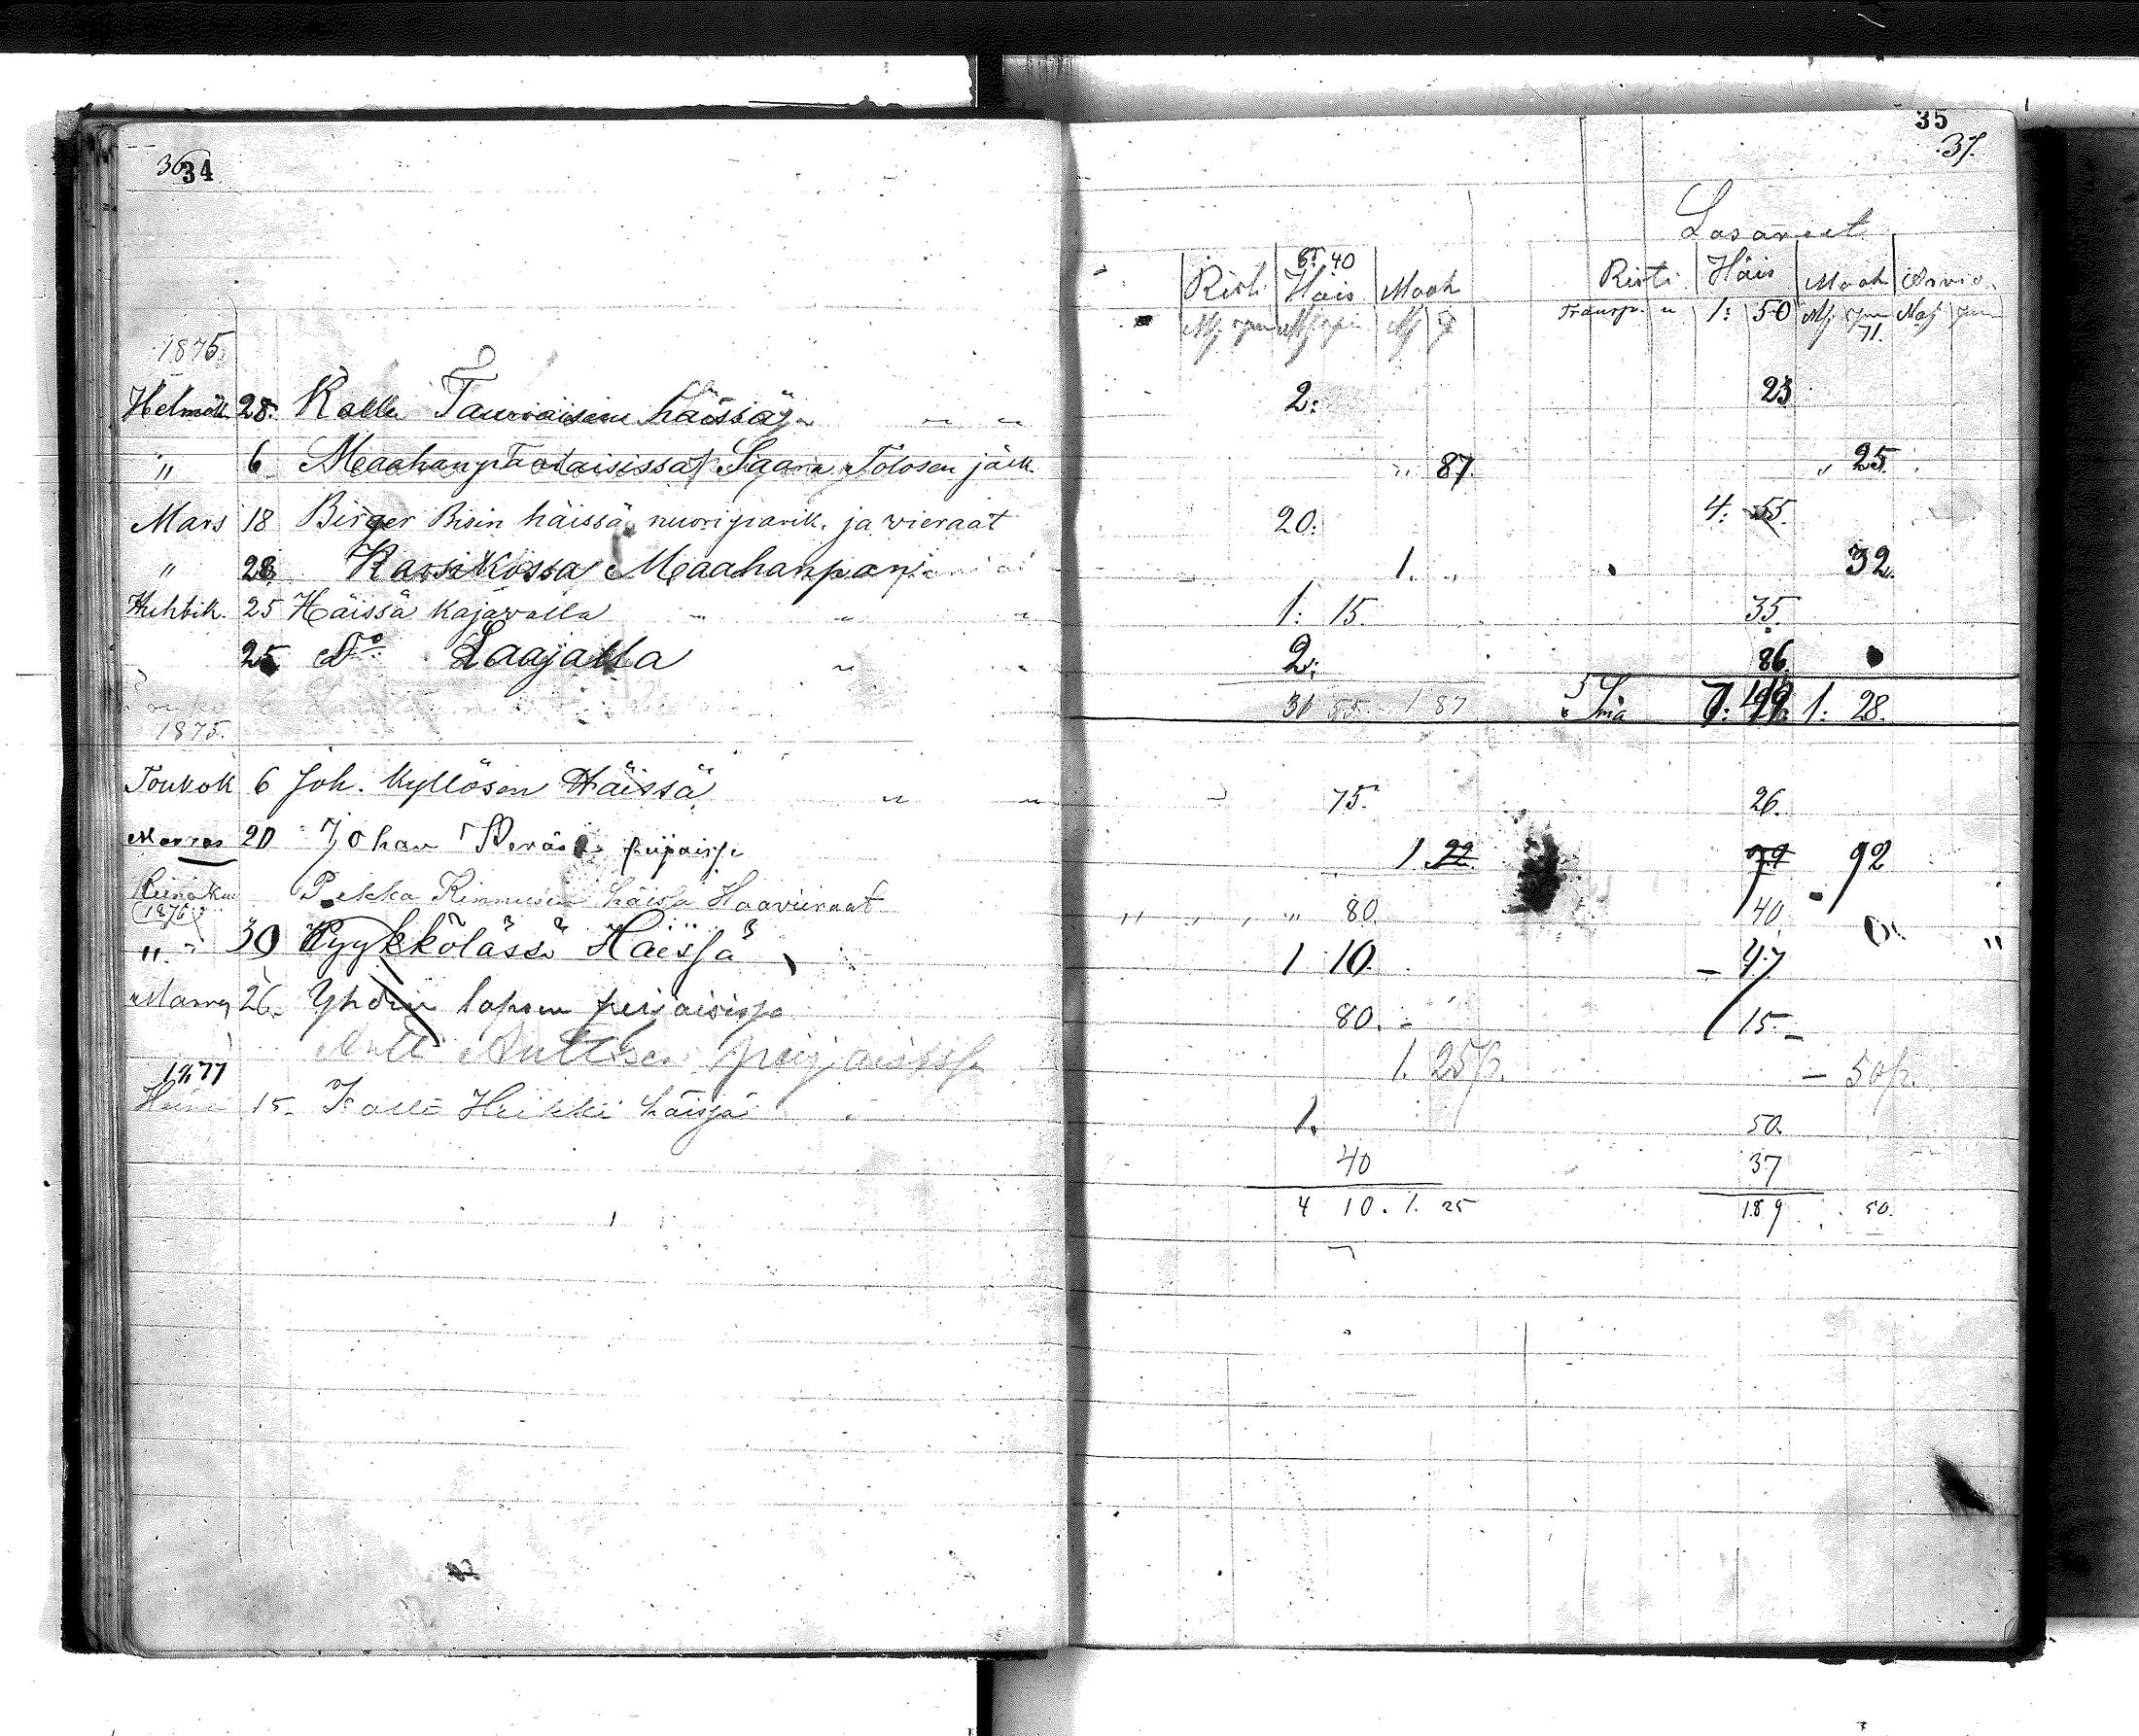 36 34
1875
Helmik. 28. Kalle Tauriaisen häissä
" 6 Maahanpaniaisissa Saara Tolosen jälk.
Mars 18 Birger Brin häissä nuoriparik. ja vieraat
" 28 Karsikossa Maahanpan
Huhtik. 25 Häissä Kajawalla
25 Do Laajalla
1875.
Toukok 6 Joh. Kyllösen Häissä
Marras 20 Johan
Pekka Kinnusen häissä Haavieraat
1876
" 30 Kyykkölässä Häissä
26. Yhden lapsen peijaisissa
Antti Anttisen peijaisissa
1877
Heinä 15. Kalle Heikki häissä
35
37.
Lasareet
6: 40
Risti Häis Maah Risti Häis Maah Arvio
Transp. 1: 50 71.
2: 23
" 87. " 25.
20: 4: 55.
1. " 32.
1: 15. 35.
2: 86.
31 55 1 87 Sma 7: 1: 28.
75. 26.
1.22. 79 92
" " " " 80. 40.
1 10. 47
80. 15.
1. 25p. 50p.
1. 50.
40 37
4 10. 1. 25 189 50.